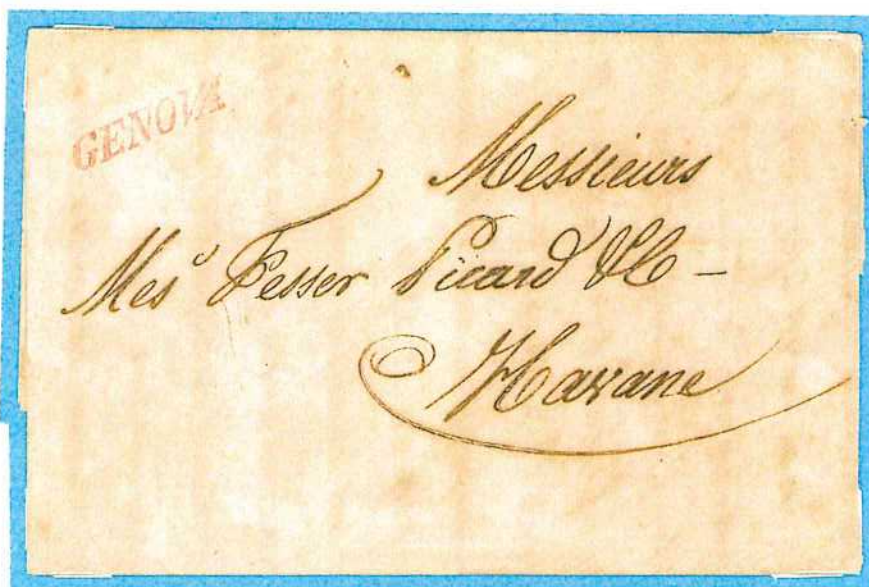 GENOVA
Messieurs
Mesˢ Fesser Picard & Co –
Havane